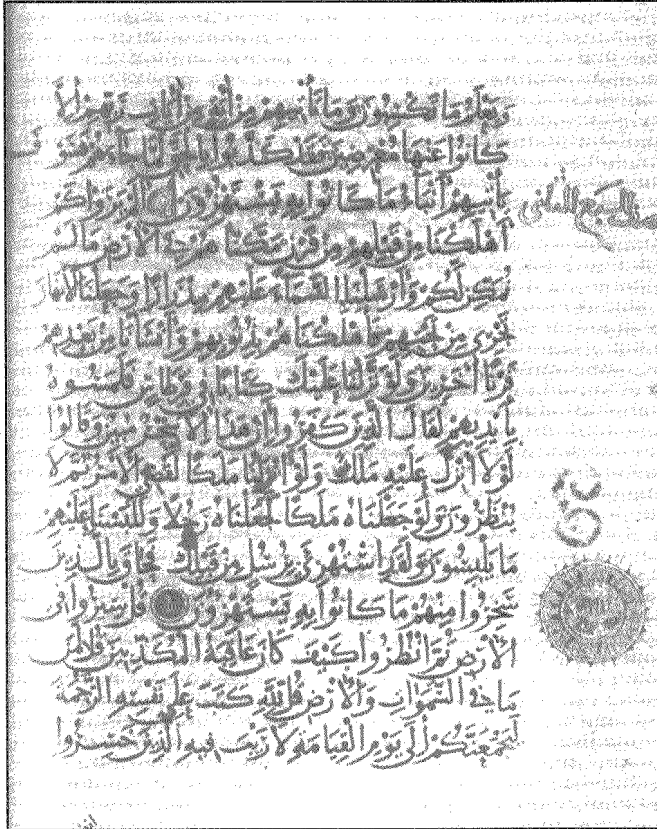 ويعلم ما تكسبون وما تأتيهم من آية من آيات ربهم إلا
كانوا عنها معرضين فقد كذبوا بالحق لما جاءهم فسوف
يأتيهم أنباء ما كانوا به يستهزءون ألم يروا كم
أهلكنا من قبلهم من قرن مكناهم في الأرض ما لم
نمكن لكم وأرسلنا السماء عليهم مدرارا وجعلنا الأنهار
تجري من تحتهم فأهلكناهم بذنوبهم وأنشأنا من بعدهم
قرنا آخرين ولو نزلنا عليك كتابا في قرطاس فلمسوه
بأيديهم لقال الذين كفروا إن هذا إلا سحر مبين وقالوا
لولا أنزل عليه ملك ولو أنزلنا ملكا لقضي الأمر ثم لا
ينظرون ولو جعلناه ملكا لجعلناه رجلا وللبسنا عليهم
ما يلبسون ولقد استهزئ برسل من قبلك فحاق بالذين
سخروا منهم ما كانوا به يستهزءون قل سيروا في
الأرض ثم انظروا كيف كان عاقبة المكذبين قل لمن
ما في السموات والأرض قل لله كتب على نفسه الرحمة
ليجمعنكم إلى يوم القيامة لا ريب فيه الذين خسروا
السبع الثاني